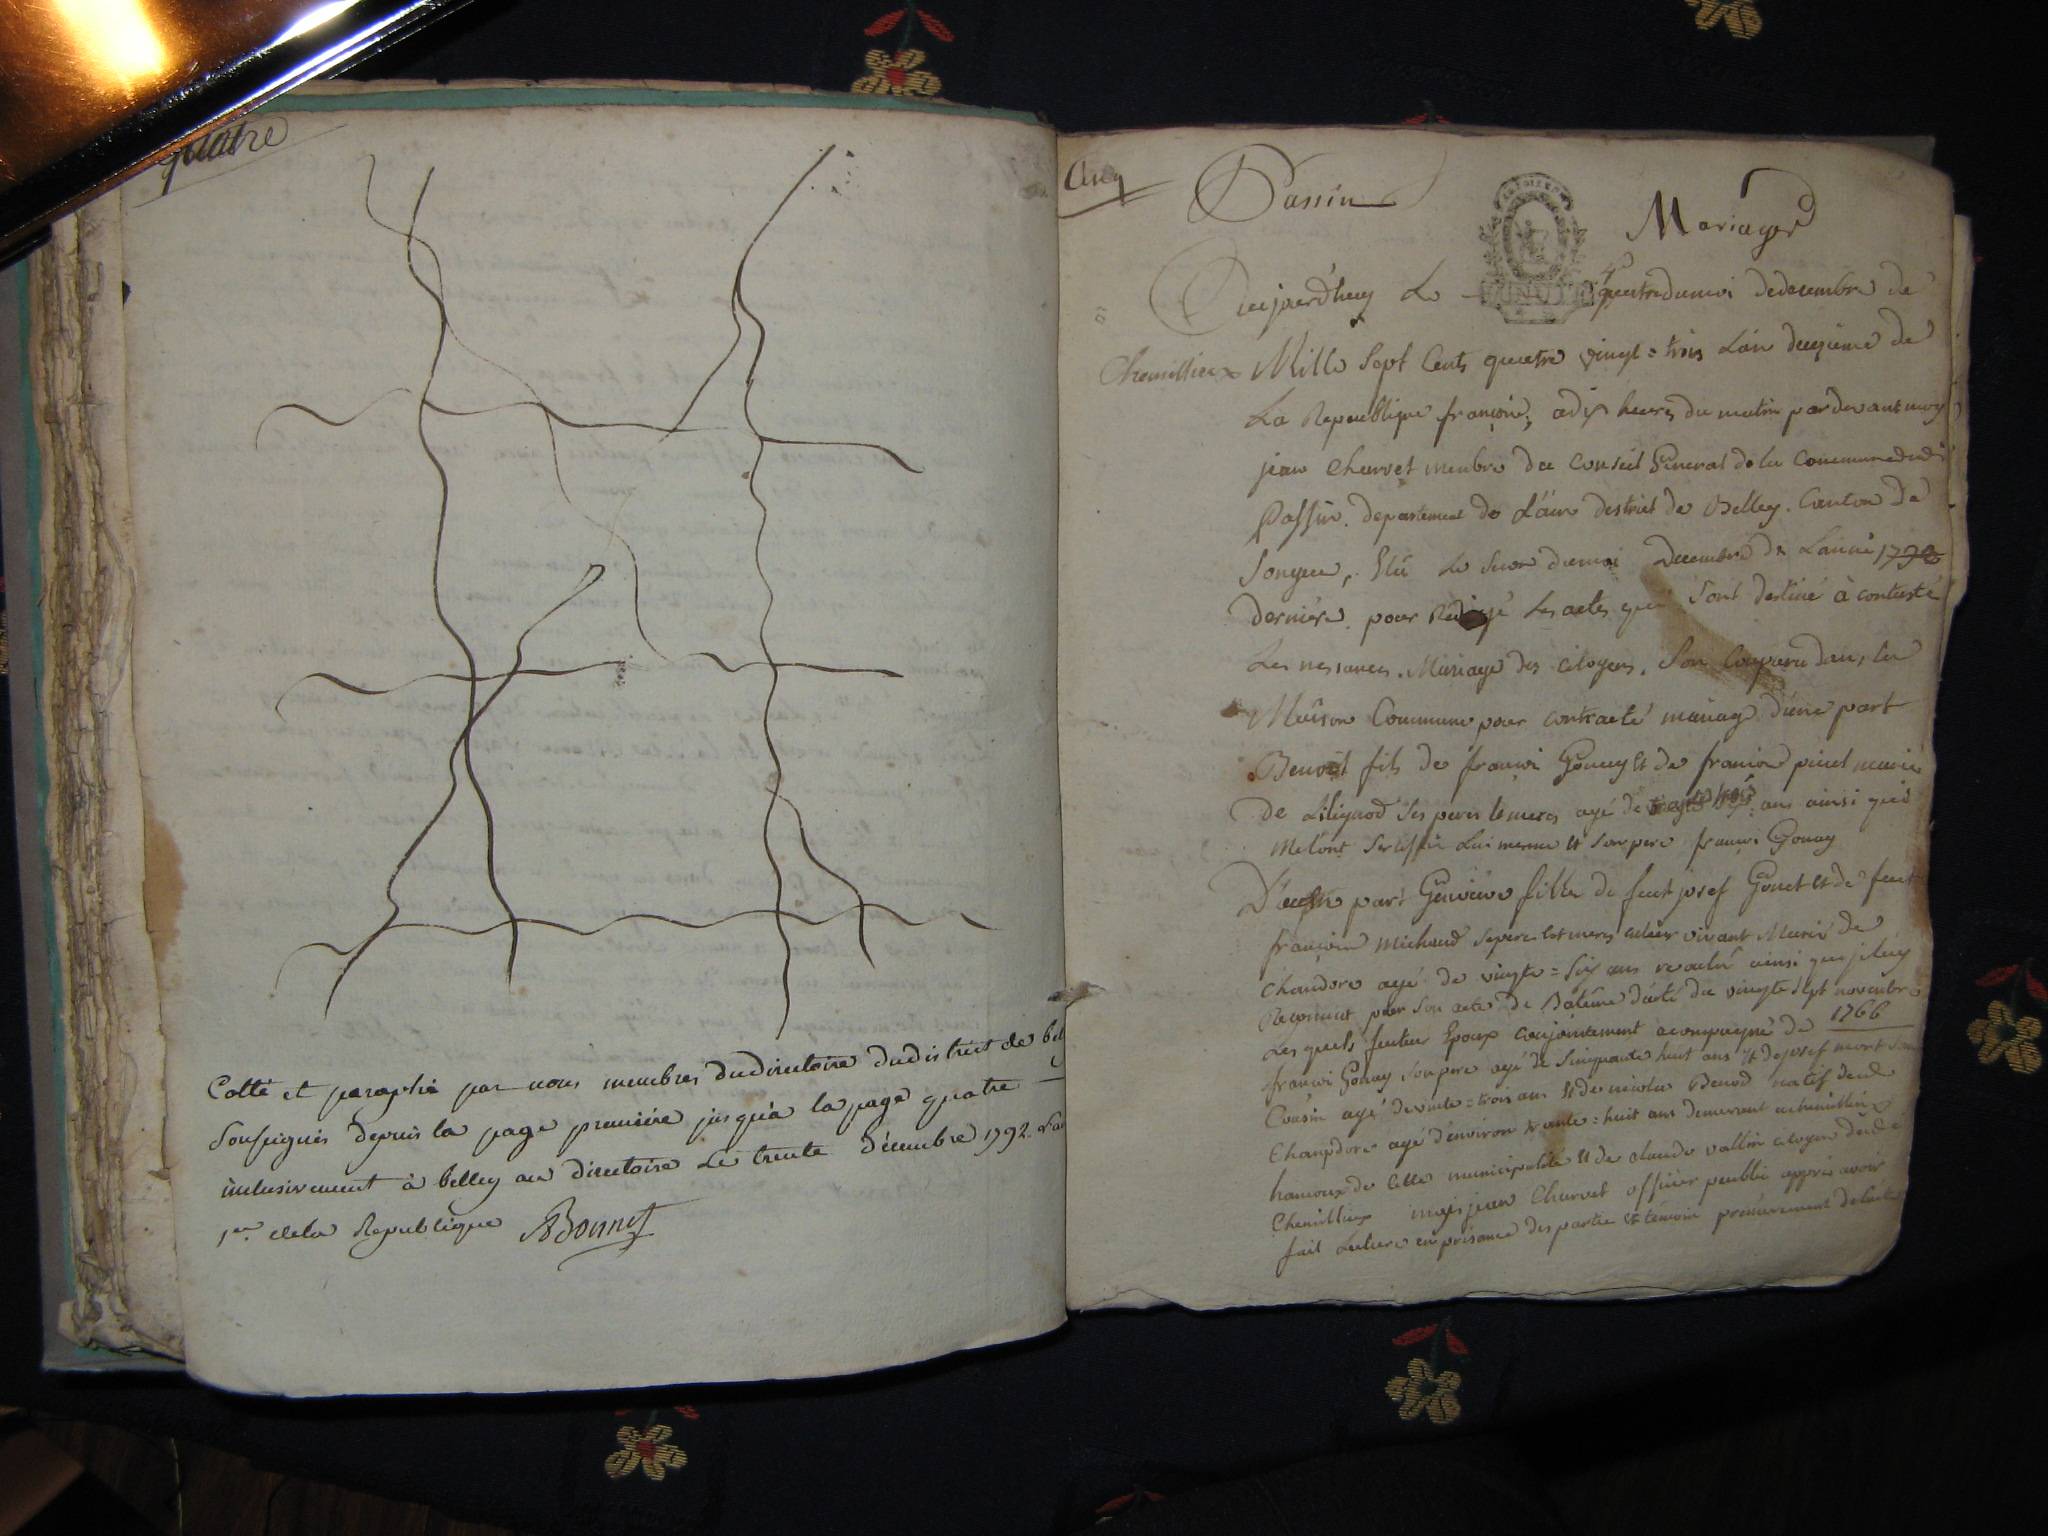 quatre
Cotté et paraphé par nous membres du directoire du district de bel
Soussignés depuis la page premiére jusqu'a la page quatre
inclusivement à belley au directoire Le trente décembre 1792. L'an
1er. de la Republique ABonnet
Cinq
Passin
Mariages
Aujourd'huy Le quatre du moi de decembre de
Chemillieux
Mille Sept Cents quatre vingt = trois L'an deuzieme de
La Republique françoise, a dix heures du matin par devant moy
jean Charvet menbre du Conseil General de la Commune de
Passin. departement de L'ain destrict de Belley. Canton de
Songieu, Elü Le du moi Decembre de L'année 1792
derniére. pour Redigé Les actes qui Sont destiné à
Les nessances. Mariage des citoyens. Son Comparu dans la
Maison Commune pour contracté mariage d'une part
Benoit fils de françoi Gonay Et de françoise
de Liligniod Ses peres Et meres agé de ans ainsi que
Me L'ont Lui meme Et Son pere françoi Gonay
D'autre part Genvieve fille de feut josef Gonet Et de feut
françoise Michaud Ses peres Et meres vivant Marié de
Chandore agé de vingte = Six ans ainsi que
Reconnut par Son acte de Batême datté du vingte Sept novenbre
1766
Les quels futeur Epoux conjointement acompagné de
françoi Gonay Son pere agé de Sinquante huit ans Et de josef
Cousin agé de vente = trois ans Et de nicolas Benod natif de
Champdore agé d'environ trante = huit ans demeurant a chemillieux
hamoux de Cette municipalité Et de claude vallin citoyen de
Chemillieux moi jean Charvet officier peublic appré avoir
fait Lecture en presance des partie Et temoin